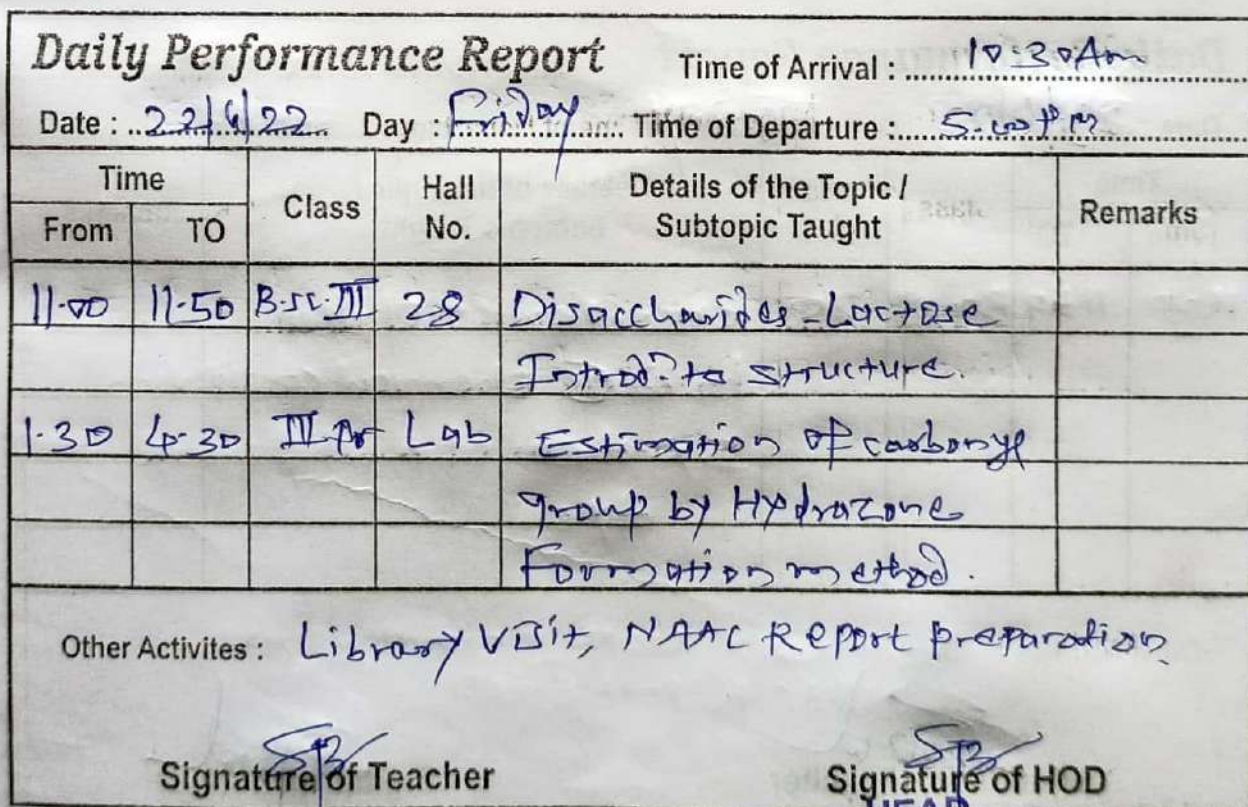 Daily Performance Report Time of Arrival : 10:30 Am
Date : 22/4/22 Day : Friday Time of Departure : 5.00 PM
Time Class Hall No. Details of the Topic / Subtopic Taught Remarks
From TO
11.00 11.50 B.sc.III 28 Disaccharides - Lactose
Introdn to structure.
1.30 4.30 III Pr Lab Estimation of carbonyl
group by Hydrazone
Formation method.
Other Activites : Library Visit, NAAC Report preparation
Signature of Teacher Signature of HOD
HEAD